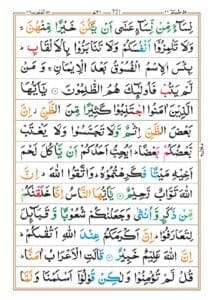 نِسَآءٌ مِّنْ نِّسَآءٍ عَسٰٓى اَنْ يَّكُنَّ خَيْرًا مِّنْهُنَّ ۚ
وَلَا تَلْمِزُوْٓا اَنْفُسَكُمْ وَلَا تَنَابَزُوْا بِالْاَلْقَابِ ؕ
بِئْسَ الِاسْمُ الْفُسُوْقُ بَعْدَ الْاِيْمَانِ ۚ وَمَنْ
لَّمْ يَتُبْ فَاُولٰٓئِكَ هُمُ الظّٰلِمُوْنَ يٰٓاَيُّهَا
الَّذِيْنَ اٰمَنُوا اجْتَنِبُوْا كَثِيْرًا مِّنَ الظَّنِّ ز
اِنَّ بَعْضَ الظَّنِّ اِثْمٌ وَّلَا تَجَسَّسُوْا وَلَا يَغْتَبْ
بَّعْضُكُمْ بَعْضًا ؕ اَيُحِبُّ اَحَدُكُمْ اَنْ يَّاْكُلَ لَحْمَ
اَخِيْهِ مَيْتًا فَكَرِهْتُمُوْهُ ؕ وَاتَّقُوا اللّٰهَ ؕ اِنَّ
اللّٰهَ تَوَّابٌ رَّحِيْمٌ يٰٓاَيُّهَا النَّاسُ اِنَّا خَلَقْنٰكُمْ
مِّنْ ذَكَرٍ وَّاُنْثٰى وَجَعَلْنٰكُمْ شُعُوْبًا وَّقَبَآئِلَ
لِتَعَارَفُوْا ؕ اِنَّ اَكْرَمَكُمْ عِنْدَ اللّٰهِ اَتْقٰىكُمْ ؕ
اِنَّ اللّٰهَ عَلِيْمٌ خَبِيْرٌ قَالَتِ الْاَعْرَابُ اٰمَنَّا ؕ
قُلْ لَّمْ تُؤْمِنُوْا وَلٰكِنْ قُوْلُوْٓا اَسْلَمْنَا وَلَمَّا